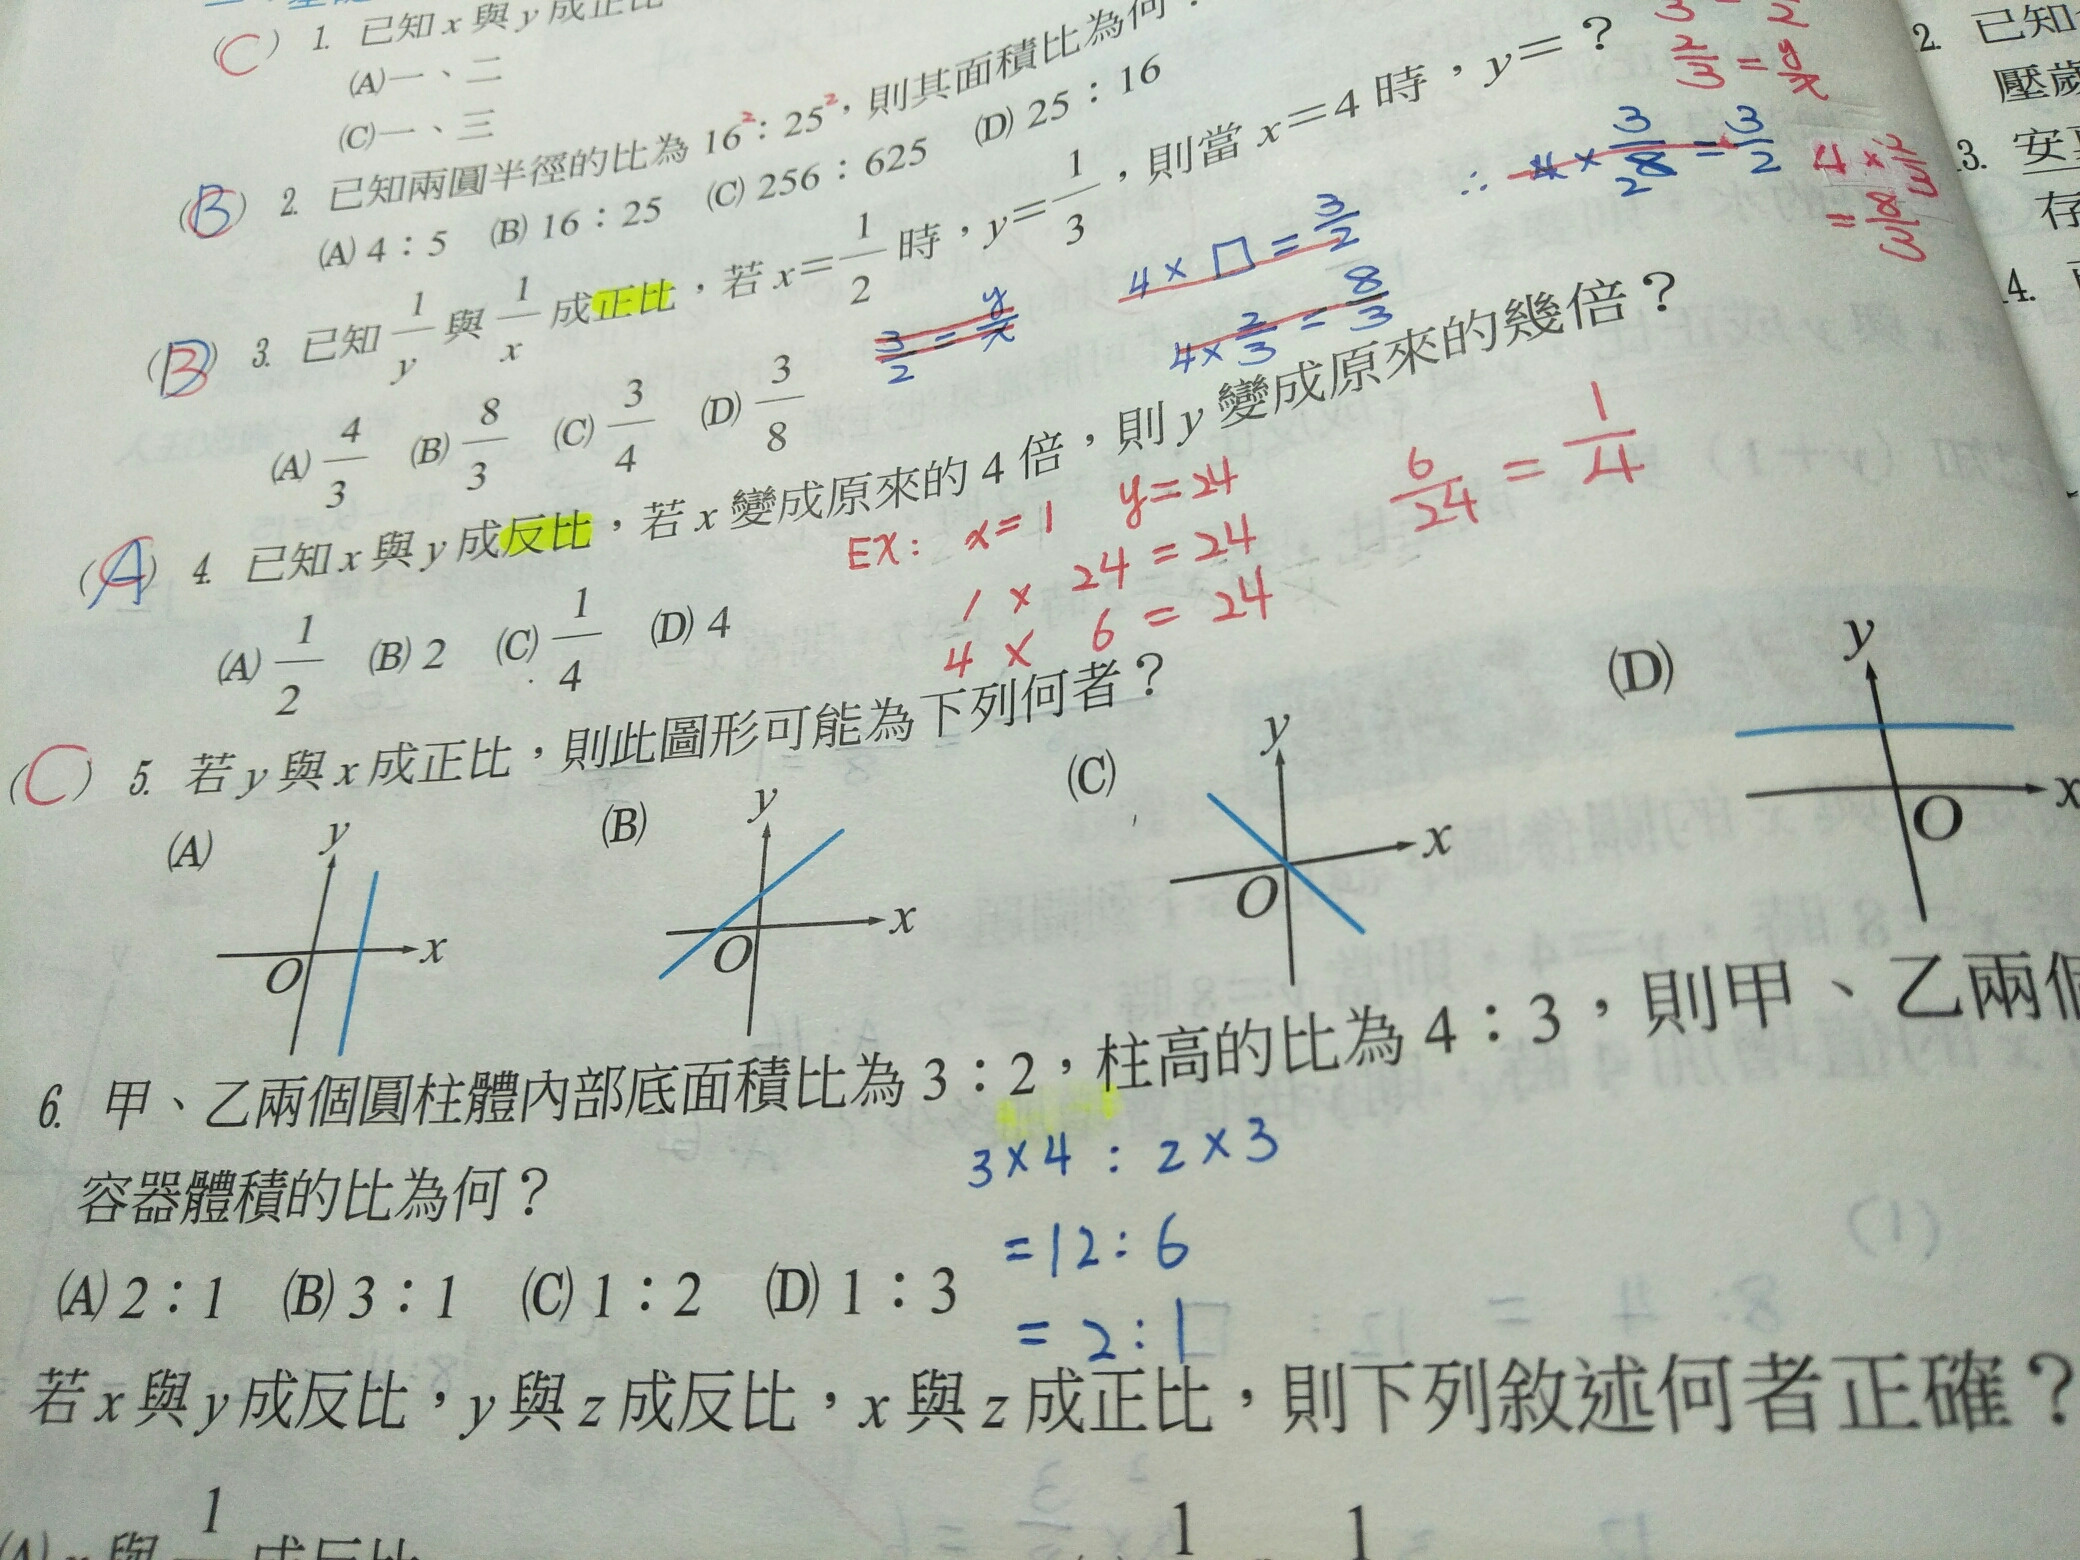 (C) 1. 已知 x 與 y 成正比
(A)一、二
(C)一、三
(B) 2. 已知兩圓半徑的比為 16²：25²，則其面積比為何？
(A) 4：5 (B) 16：25 (C) 256：625 (D) 25：16
(B) 3. 已知 1/y 與 1/x 成正比，若 x＝1/2 時，y＝1/3，則當 x＝4 時，y＝？
(A) 4/3 (B) 8/3 (C) 3/4 (D) 3/8
3/2 = y/x
4 × □ = 3/2
4 × 2/3 = 8/3
∴ 4 × 3/8 = 3/2
2
2/3 = y/x
4 × 2/3
= 8/3
(A) 4. 已知 x 與 y 成反比，若 x 變成原來的 4 倍，則 y 變成原來的幾倍？
(A) 1/2 (B) 2 (C) 1/4 (D) 4
EX: x=1 y=24
1 × 24 = 24
4 × 6 = 24
6/24 = 1/4
(C) 5. 若 y 與 x 成正比，則此圖形可能為下列何者？
(A) y x O
(B) y x O
(C) y x O
(D) y x O
6. 甲、乙兩個圓柱體內部底面積比為 3：2，柱高的比為 4：3，則甲、乙兩個
容器體積的比為何？
3×4 : 2×3
=12:6
= 2:1
(A) 2：1 (B) 3：1 (C) 1：2 (D) 1：3
若 x 與 y 成反比，y 與 z 成反比，x 與 z 成正比，則下列敘述何者正確？
(A) x 與 1 成反比
1 1
2. 已知
壓歲
3.
存
4.